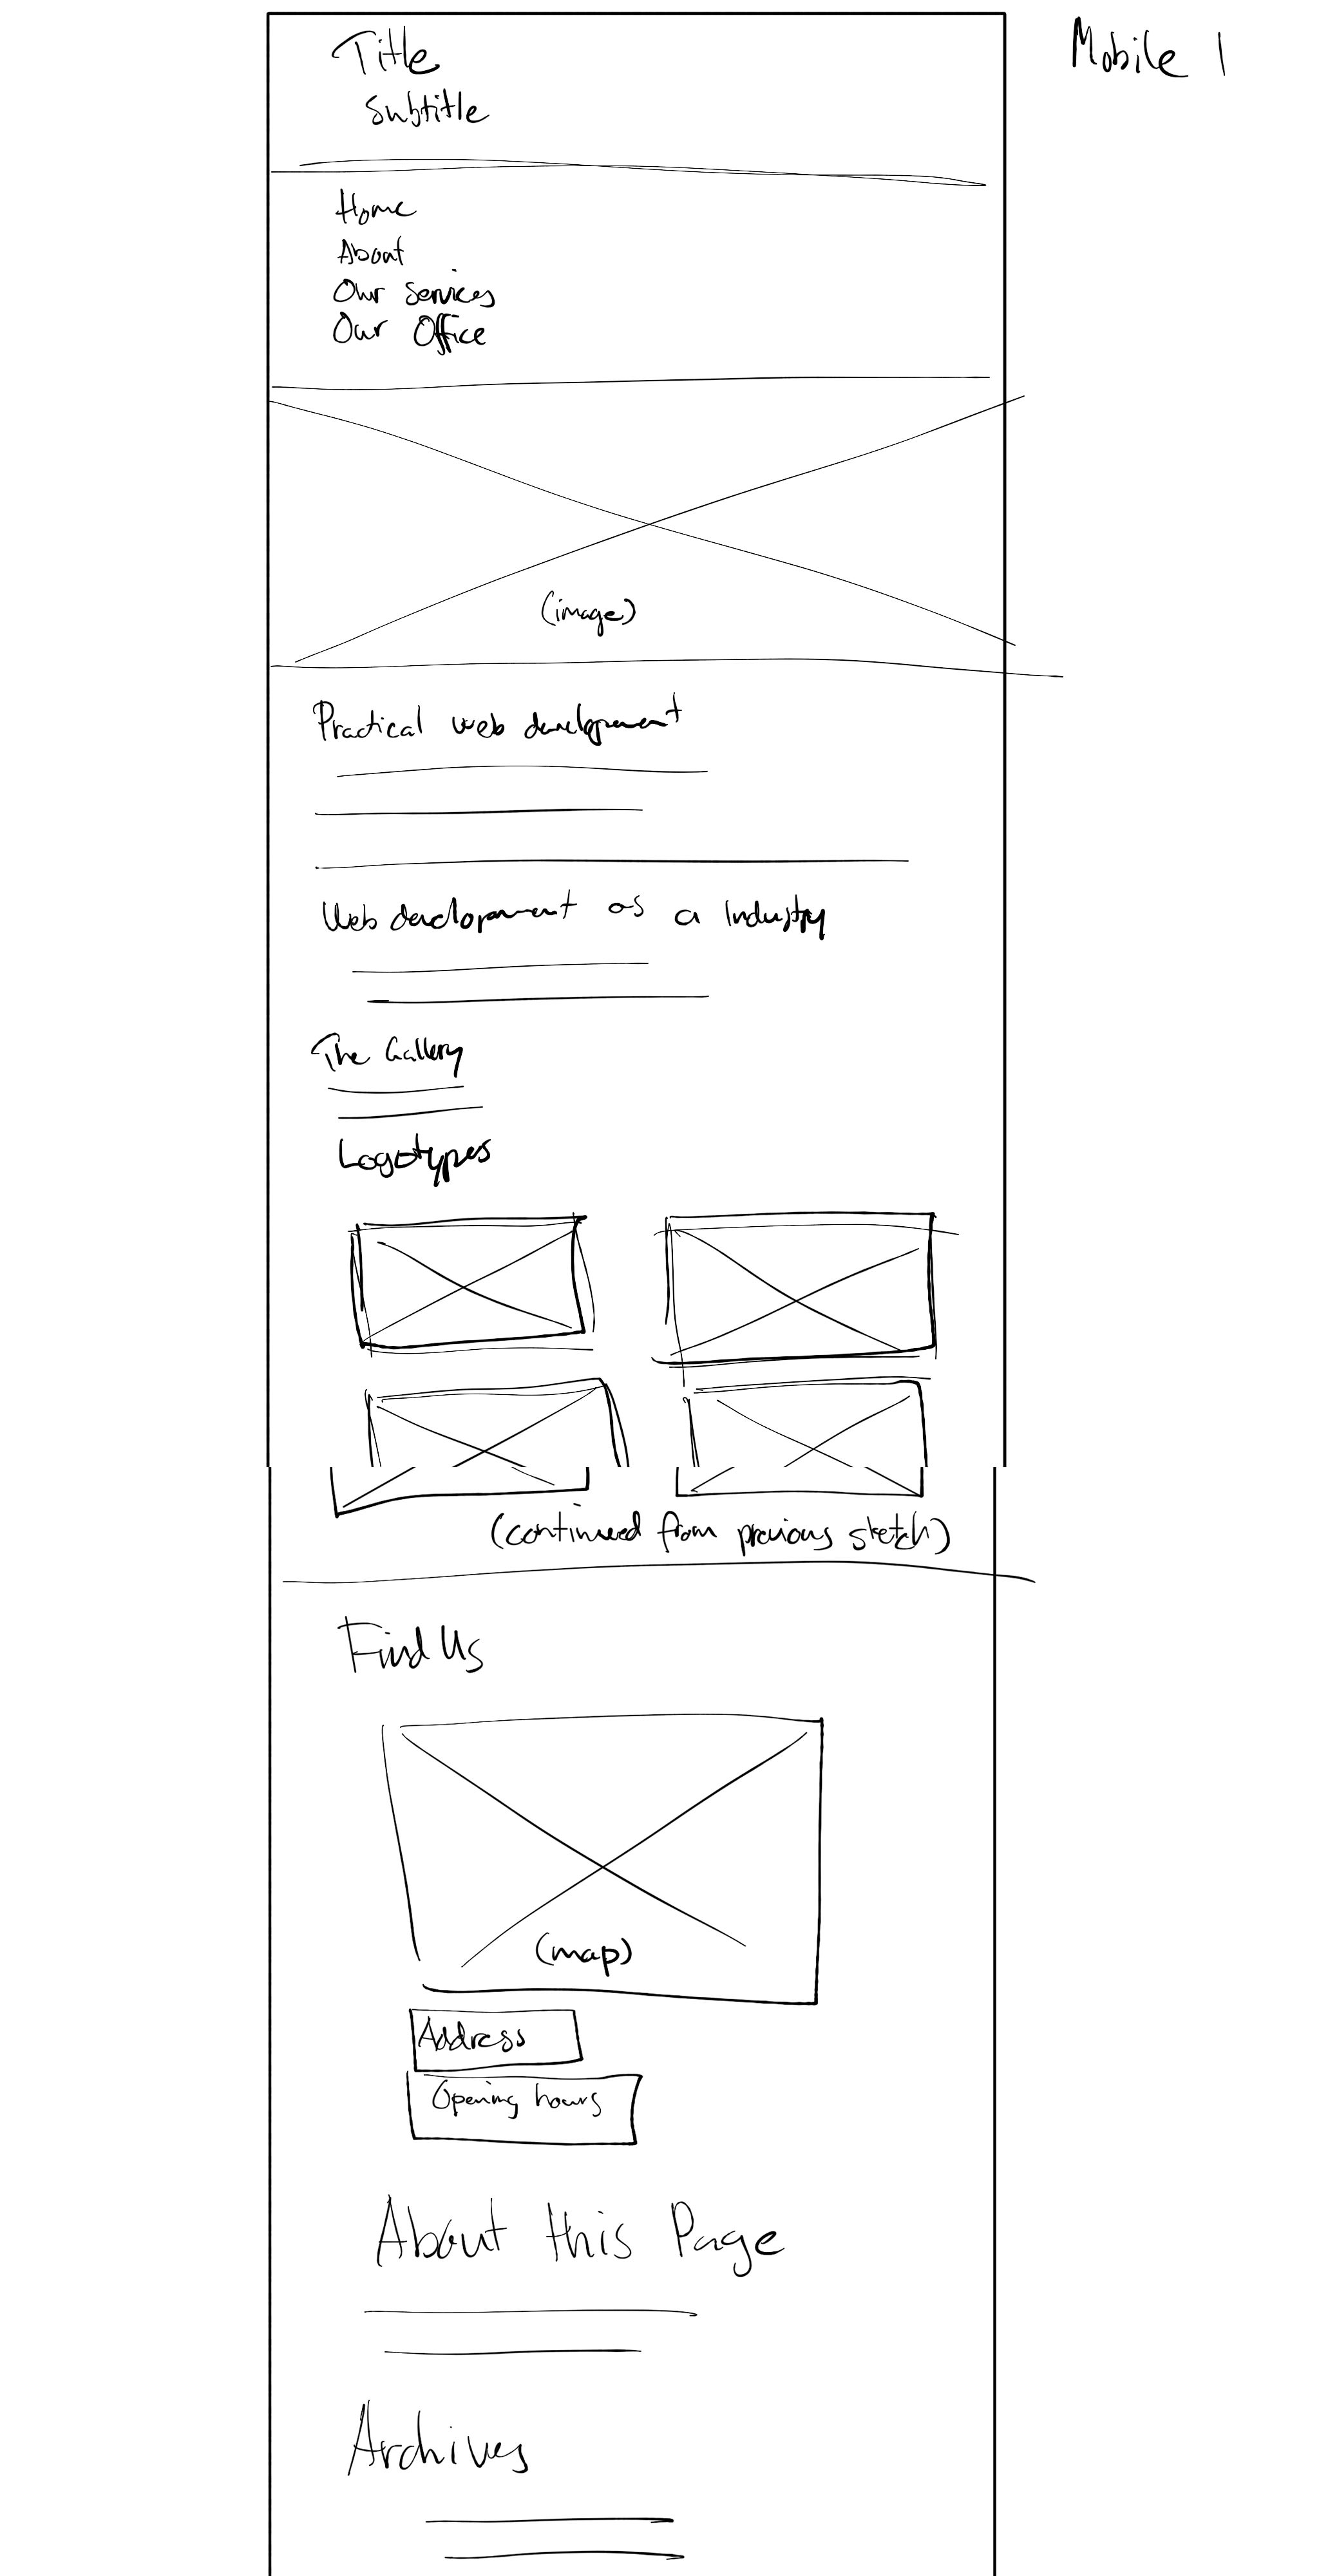 Mobile 1
Title
Subtitle
Home
About
Our Services
Our Office
(image)
Practical web development
Web development as a Industry
The Gallery
Logotypes
(continued from previous sketch)
Find Us
(map)
Address
Opening hours
About this Page
Archives